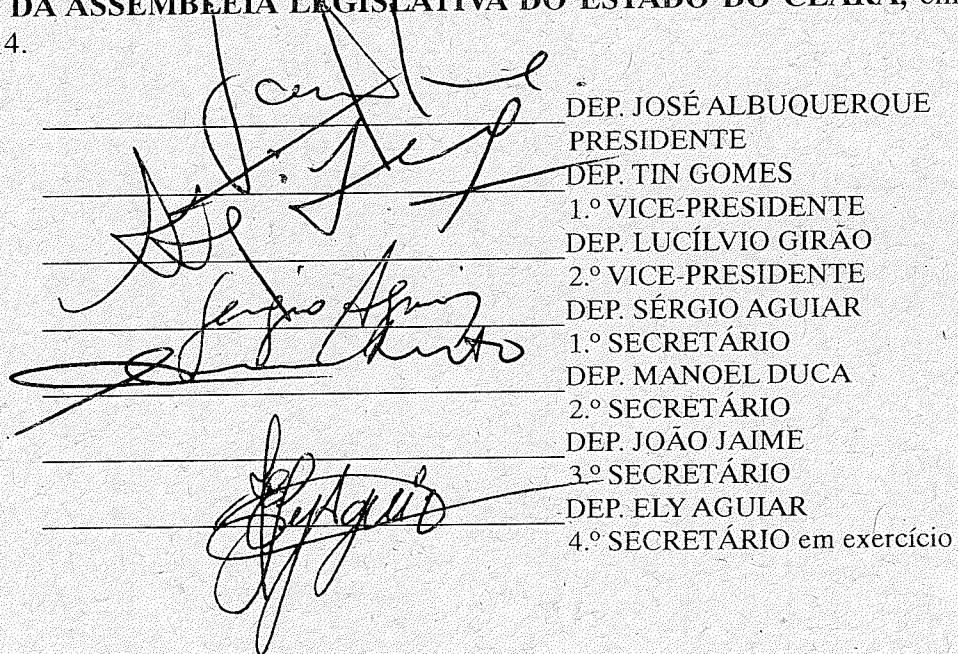 DA ASSEMBLEIA LEGISLATIVA DO ESTADO DO CEARÁ, em
4.
DEP. JOSÉ ALBUQUERQUE
PRESIDENTE
DEP. TIN GOMES
1.º VICE-PRESIDENTE
DEP. LUCÍLVIO GIRÃO
2.º VICE-PRESIDENTE
Sergio Aguiar
DEP. SÉRGIO AGUIAR
1.º SECRETÁRIO
DEP. MANOEL DUCA
2.º SECRETÁRIO
DEP. JOÃO JAIME
3.º SECRETÁRIO
Ely Aguiar
DEP. ELY AGUIAR
4.º SECRETÁRIO em exercício